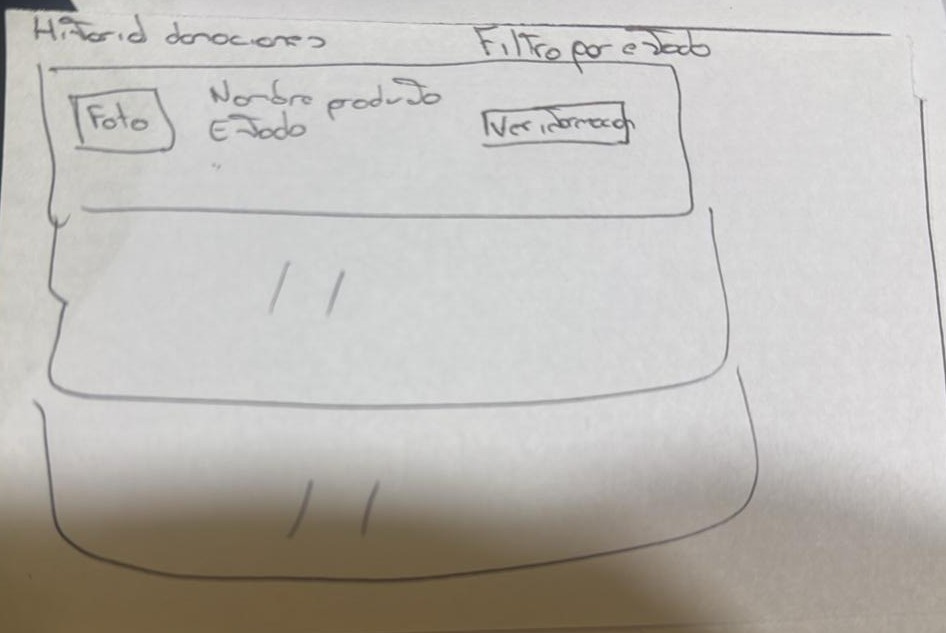 Historial donaciones
Filtro por estado
Foto
Nombre producto
Estado
Ver información